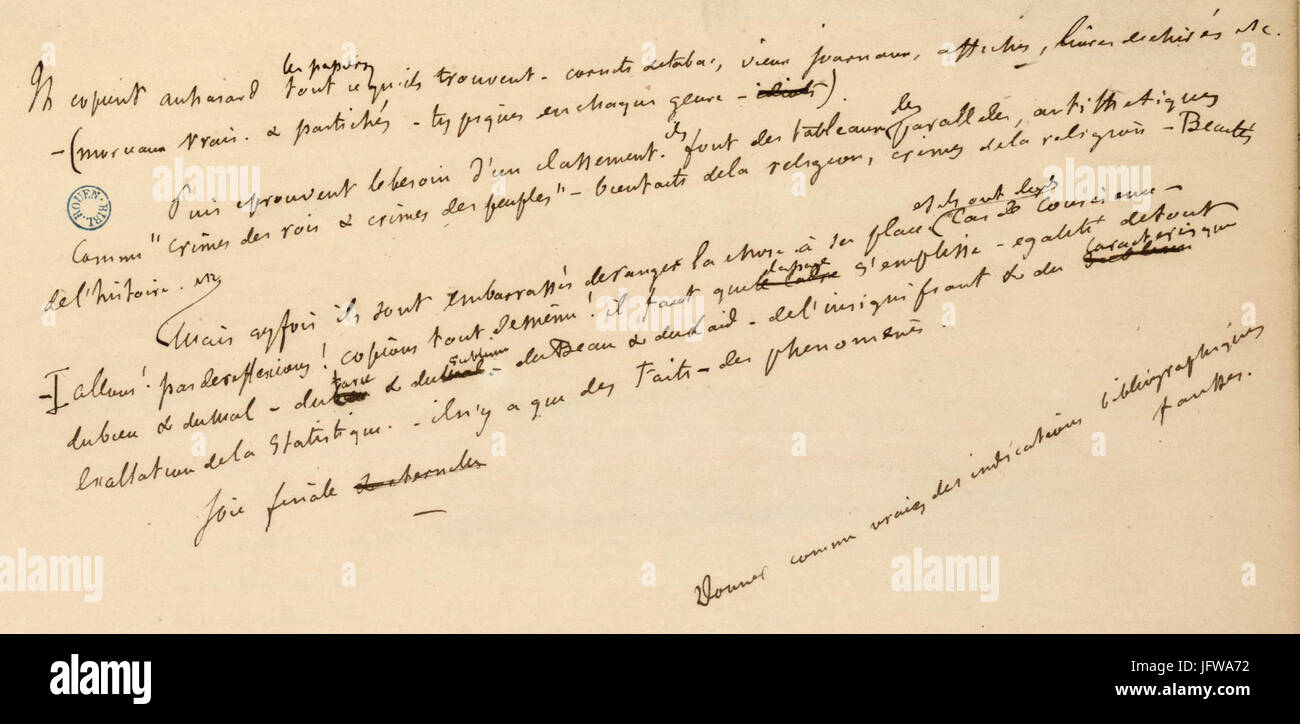 les papiers
Ils copient au hasard tout ce qu'ils trouvent - cornets de tabac, vieux journaux, affiches, livres déchirés etc.
- (morceaux vrais. & pastichés - typiques en chaque genre - idiots).
Puis éprouvent le besoin d'un classement. ils font des tableaux, les parallèles, antithétiques
comme "crimes des rois & crimes des peuples" - bienfaits de la religion, crimes de la religion - Beautés
de l'histoire. etc
Mais qqfois ils sont embarrassés de ranger la chose à sa place & ils ont des Cas de conscience -
- allons! pas de réflexions! copions tout de même! il faut que le cadre la page s'emplisse - égalité de tout
du bien & du mal - du farce & du sublime - du Beau & du Laid - de l'insignifiant & du sublime caractéristique
Exaltation de la Statistique. - il n'y a que des Faits - des phénomènes.
Joie finale & éternelle
Donner comme vraies des indications bibliographiques
fausses.
ROUEN BIBL.
alamy stock photo
alamy
Image ID: JFWA72
www.alamy.com